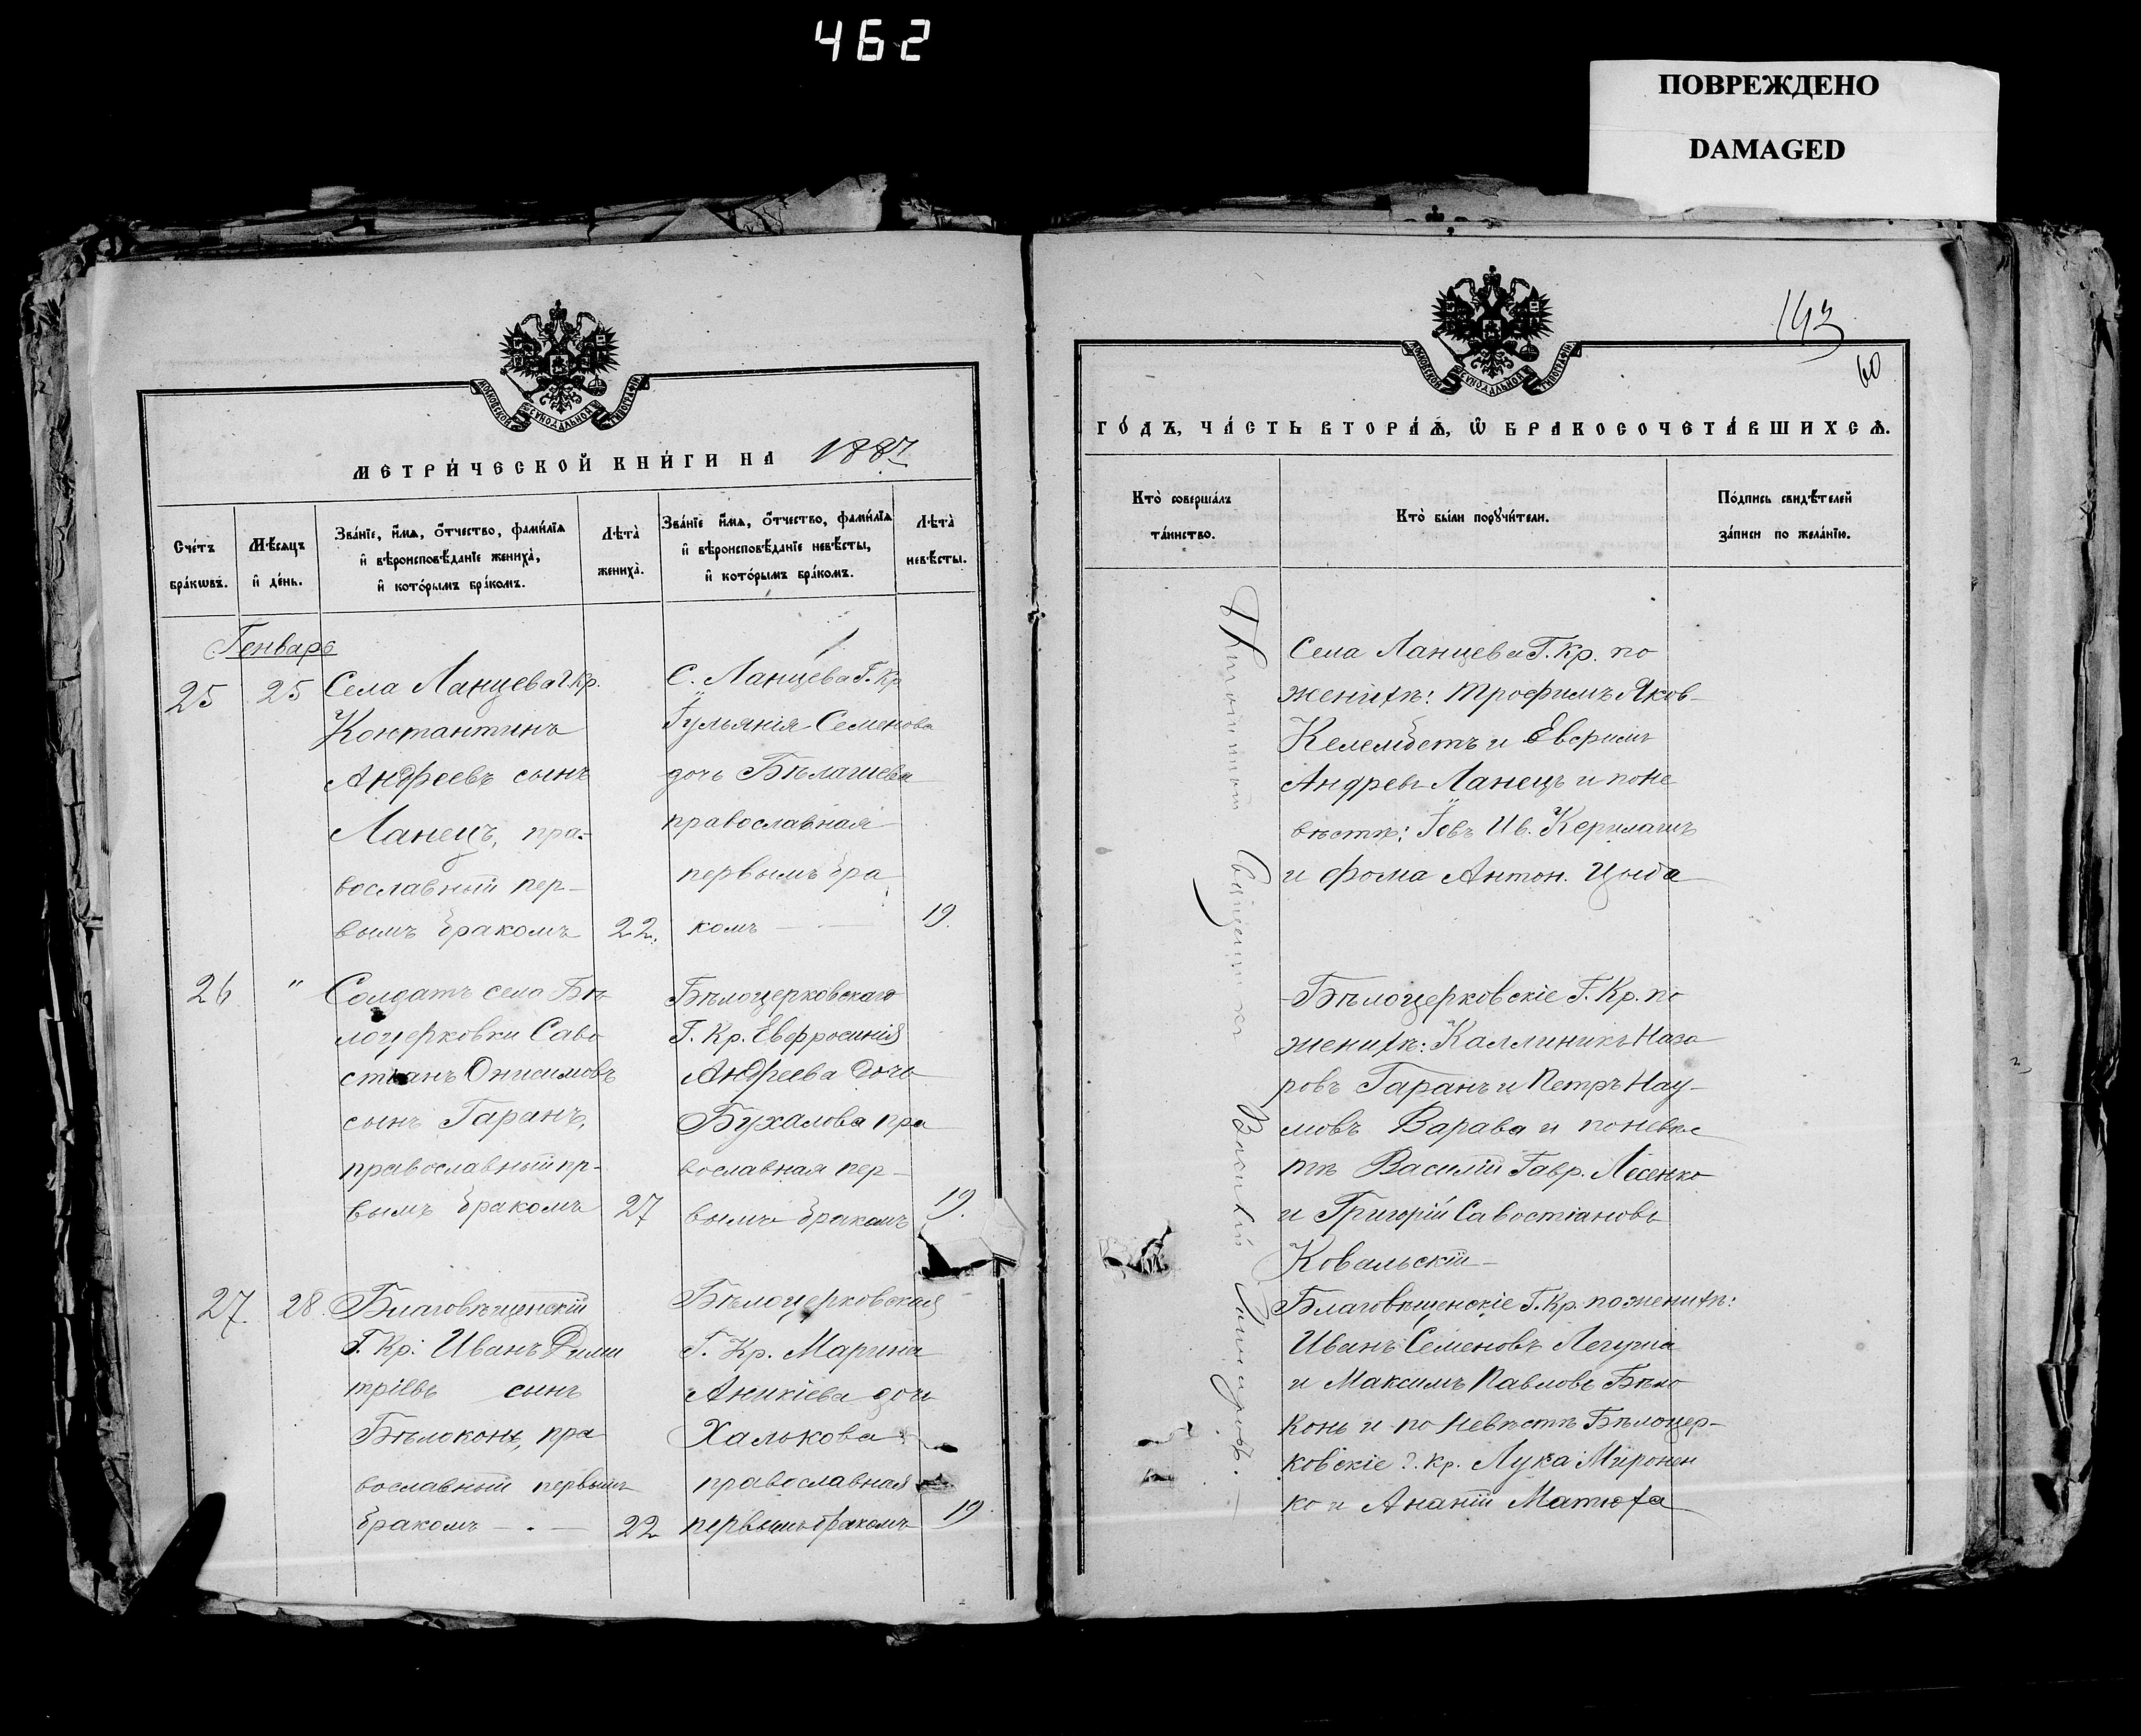 462
ПОВРЕЖДЕНО
DAMAGED
МОСКОВСКОЙ СУНОДАЛЬНОЙ ТИПОГРАФІИ
МЕТРИЧЕСКОЙ КНИГИ НА 1887
Счетъ браковъ.
Мѣсяцъ и день.
Званіе, имя, отчество, фамилія
и вѣроисповѣданіе жениха,
и которымъ бракомъ.
Лѣта
жениха.
Званіе имя, отчество, фамилія
и вѣроисповѣданіе невѣсты,
и которымъ бракомъ.
Лѣта
невѣсты.
Генварь
25
25
Села Ланцева Г. Кр.
Контантинъ
Андреевъ сынъ
Ланецъ, пра-
вославный пер-
вымъ бракомъ
22.
С. Ланцева Г. Кр
Іульянія Семенова
дочь Бѣлашева
православная
первымъ бра
комъ
19.
26
"
Солдатъ села Бѣ-
лоцерковки Саво
стіанъ Онисимовъ
сынъ Гаранъ,
православный пр-
вымъ бракомъ
27
Бѣлоцерковскаго
Г. Кр. Евфросинія
Андреева дочь
Бухалова пра
вославная пер-
вымъ бракомъ
19.
27.
28.
Благовѣщенскій
Г. Кр. Иванъ Дими
тріевъ сынъ
Бѣлоконь, пра
вославный первымъ
бракомъ - . -
22
Бѣлоцерковская
Г. Кр. Марина
Аникіева дочь
Халькова
православная
первымъ бракомъ
19.
143
60
МОСКОВСКОЙ СУНОДАЛЬНОЙ ТИПОГРАФІИ
ГОДЪ, ЧАСТЬ ВТОРАЯ, Ѡ БРАКОСОЧЕТАВШИХСЯ.
Кто совершалъ
таинство.
Кто были поручители.
Подпись свидѣтелей
записи по желанію.
Священникъ Василій
Села Ланцева Г. Кр. по
женихѣ: Трофимъ Яков-
Келембетъ и Евфимъ
Андреев Ланецъ и по не
вѣстѣ: Іовъ Ив.
и Фома Антон. Цыба
Бѣлоцерковскіе Г. Кр. по
женихѣ: Каллиникъ Наза
ровъ Гаранъ и Петръ Нау-
мовъ Варава и по невѣс
тѣ Василій Гавр. Лесенко
и Григорій Савостіановъ
Ковальскій
Благовѣщенскіе Г. Кр. по женихѣ:
Иванъ Семеновъ
и Максимъ Павловъ Бѣло
конь и по невѣстѣ Бѣлоцер-
ковскіе Г. Кр. Лука Миронен
ко и Ананій Матюха